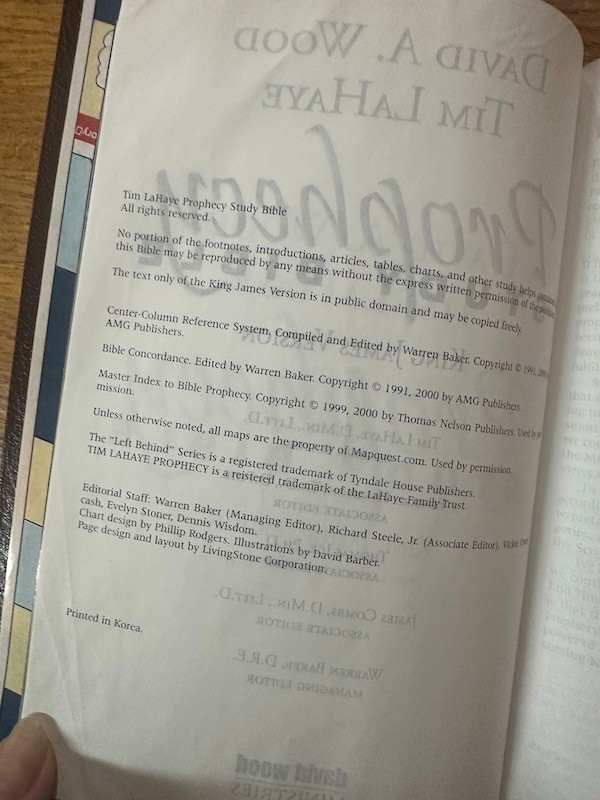 Tim LaHaye Prophecy Study Bible
All rights reserved.
No portion of the footnotes, introductions, articles, tables, charts, and other study helps
this Bible may be reproduced by any means without the express written permission of the
The text only of the King James Version is in public domain and may be copied freely.
Center-Column Reference System, Compiled and Edited by Warren Baker. Copyright © 1991,
AMG Publishers.
Bible Concordance. Edited by Warren Baker. Copyright © 1991, 2000 by AMG Publishers.
Master Index to Bible Prophecy. Copyright © 1999, 2000 by Thomas Nelson Publishers. Used by
mission.
Unless otherwise noted, all maps are the property of Mapquest.com. Used by permission.
The "Left Behind" Series is a registered trademark of Tyndale House Publishers.
TIM LAHAYE PROPHECY is a reistered trademark of the LaHaye Family Trust.
Editorial Staff: Warren Baker (Managing Editor), Richard Steele, Jr. (Associate Editor),
cash, Evelyn Stoner, Dennis Wisdom.
Chart design by Phillip Rodgers. Illustrations by David Barber.
Page design and layout by LivingStone Corporation.
Printed in Korea.
DAVID A. WOOD
TIM LAHAYE
Prophecy
KING JAMES VERSION
TIM LAHAYE, D.MIN., LITT.D.
ASSOCIATE EDITOR
ASSOCIATE
JAMES COMBS, D.MIN., LITT.D.
ASSOCIATE EDITOR
WARREN BAKER, D.R.E.
MANAGING EDITOR
david wood
MINISTRIES